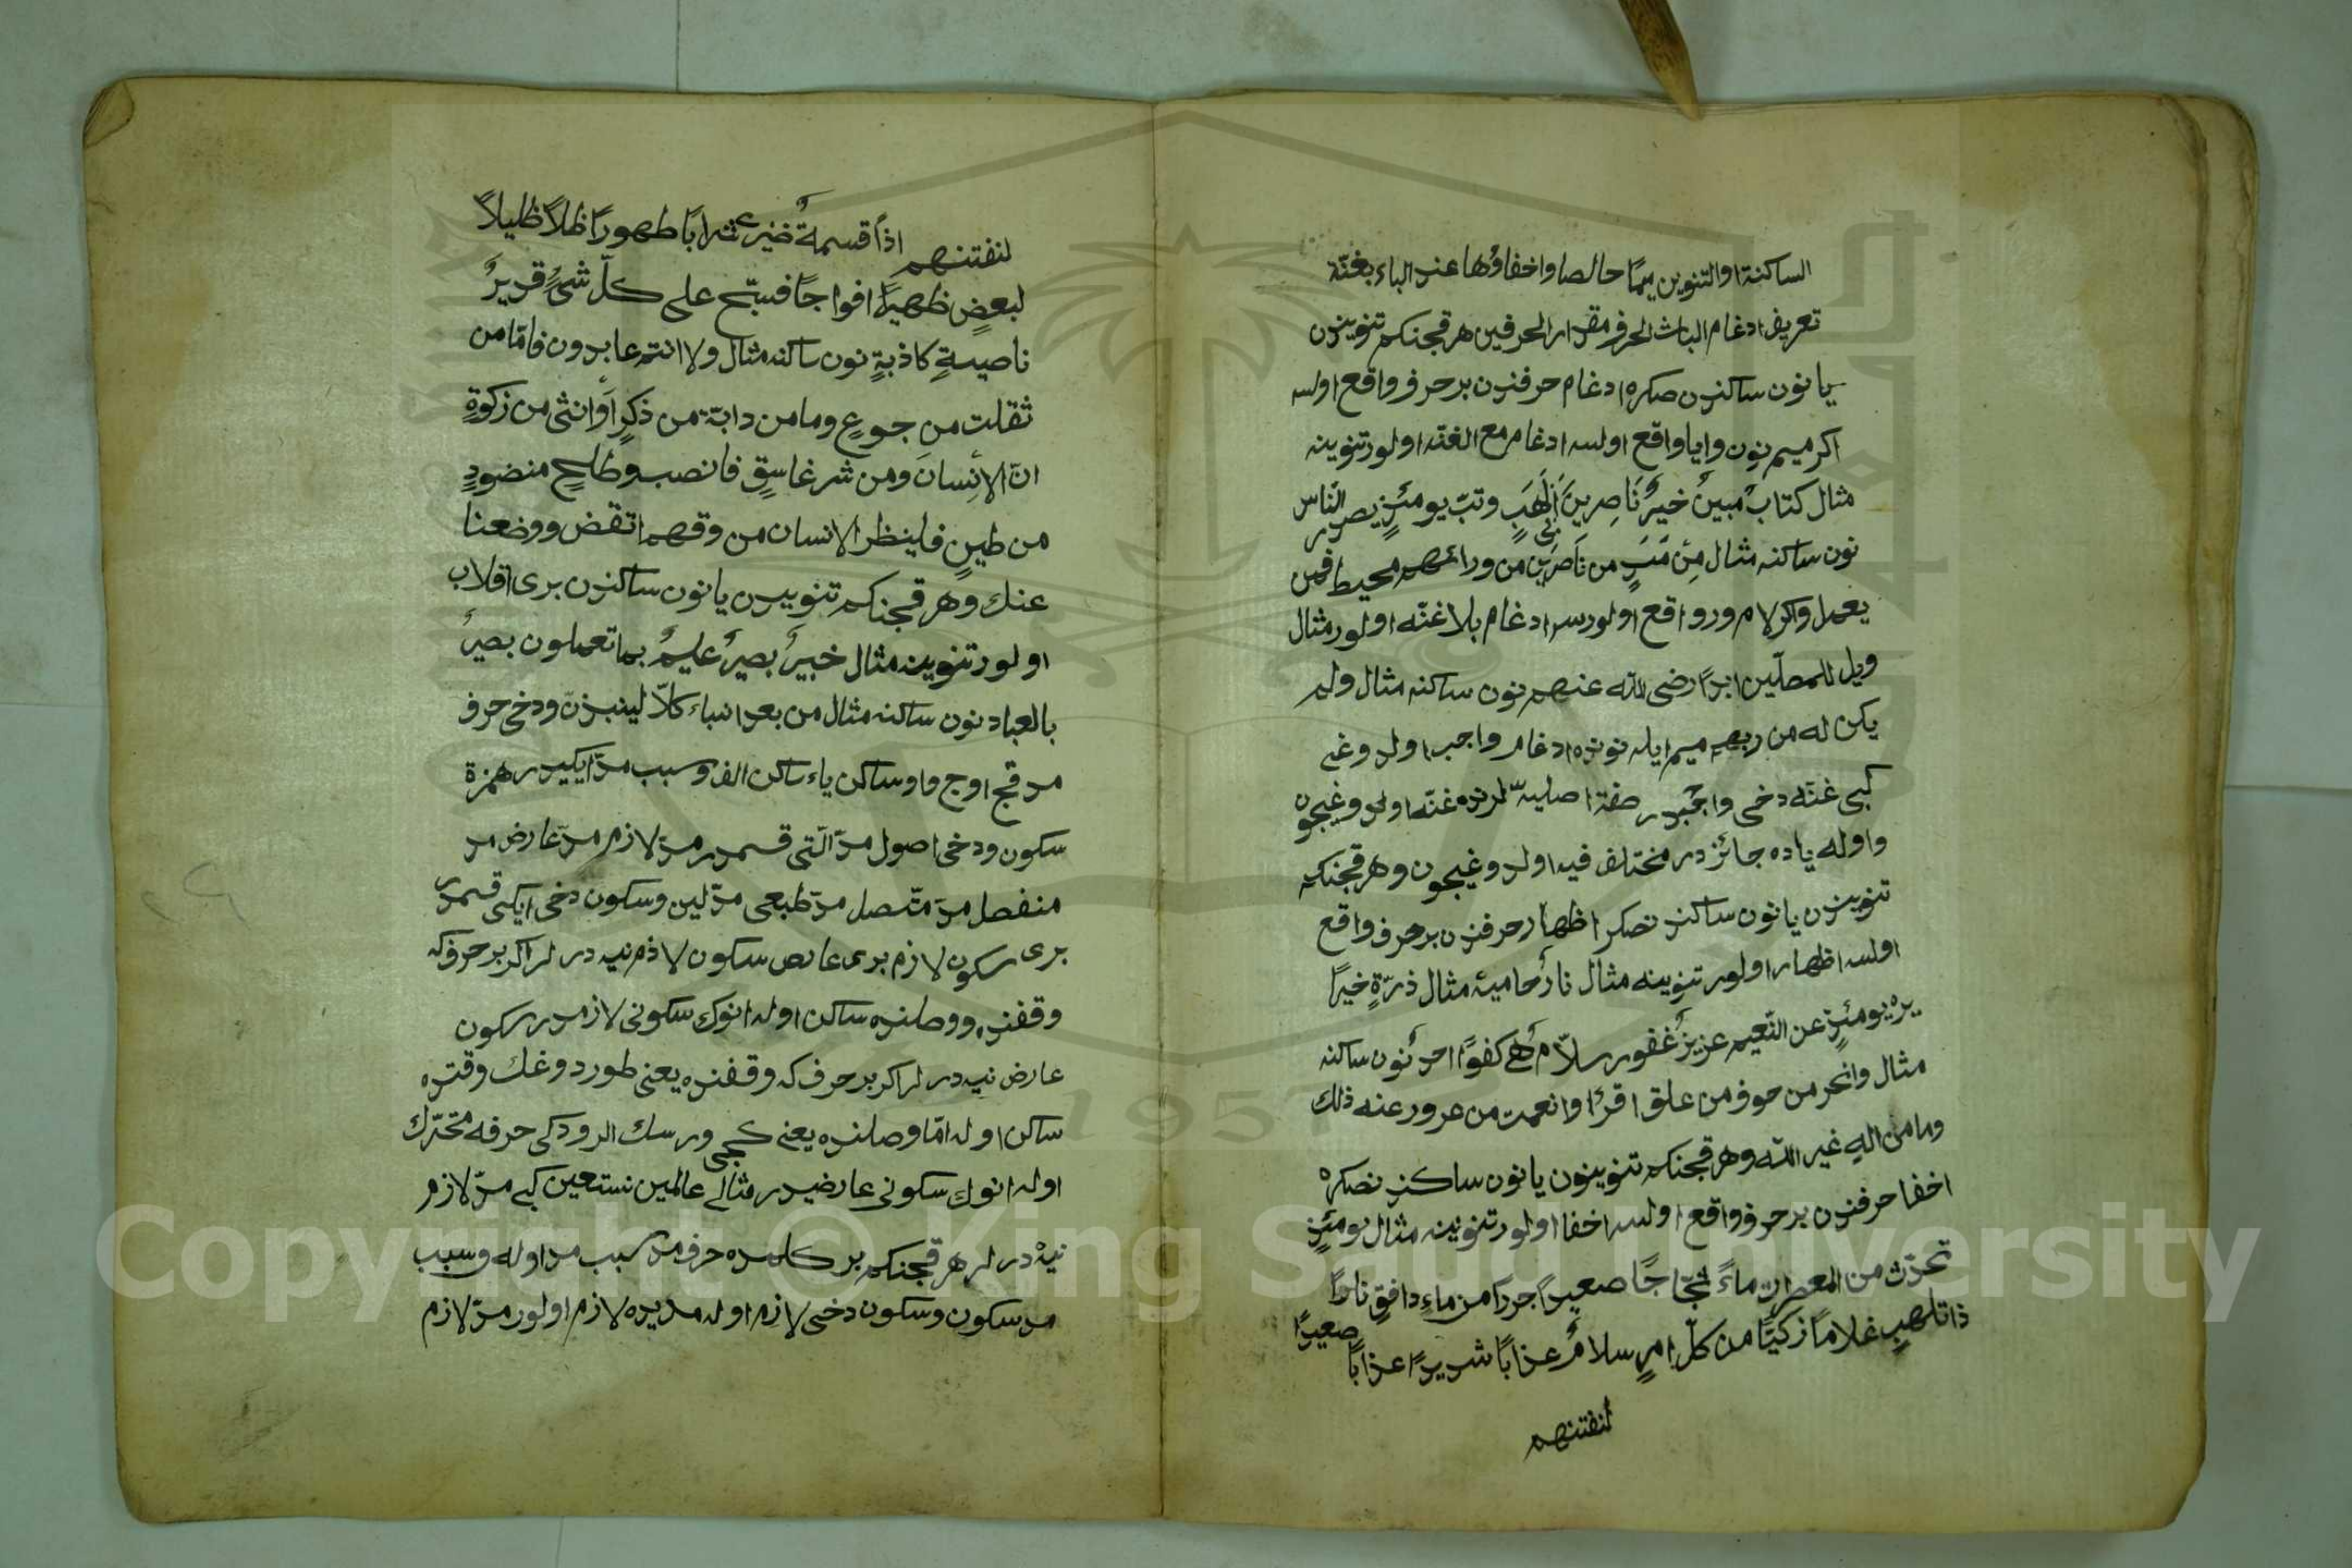 الساكنة او التنوين ميمًا خالصا واخفاؤها عند الباء بغنّة
تعريف ادغام الباث الحرف مقدار الحرفين هر قچنكم تنويندن
يا نون ساكندن صكره ادغام حرفندن بر حرف واقع اولسه
اكر ميم نون واو يا واقع اولسه ادغام مع الغنّه اولور تنوينه
مثال كتابٌ مبينٌ خيرٌ ناصرين لهبٍ وتبّ يومئذٍ يصدر الناس
نون ساكنه مثال من من ناصرين من ورائهم محيط فمن
يعمل واكر لام ورو واقع اولورسه ادغام بلا غنّه اولور مثال
ويل للمصلّين ابدًا رضى الله عنهم نون ساكنه مثال ولم
يكن له من ربهم ميم ايله نونده ادغام واجب اولدوغى
كبى غنّه دخى واجبدر صفة اصليه لرنده غنّه اولدوغيچون
واوله ياده جائز در مختلف فيه اولدوغيچون وهر قچنكم
تنويندن يا نون ساكندن نصكره اظهار حرفندن بر حرف واقع
اولسه اظهار اولور تنوينه مثال نارٌ حامية مثال ذرّةٍ خيرًا
يره يومئذٍ عن النّعيم عزيزٌ غفور سلامٌ هى كفوًا احدٌ نون ساكنه
مثال وانحر من خوف من علق اقرا وانعمت من عرور عنه ذلك
وما من الهٍ غير الله وهر قچنكم تنويندن يا نون ساكندن نصكره
اخفا حرفندن بر حرف واقع اولسه اخفا اولور تنوينه مثال يومئذٍ
تحدّث من المعصرات ماءً ثجّاجًا صعيدًا جرزا من ماءٍ دافقٍ نارًا
ذات لهبٍ غلامًا زكيًّا من كلّ امرٍ سلامٌ عذابًا شديدًا عذابًا صعيدًا
لنفتنهم
لنفتنهم اذًا قسمةٌ ضيزى شرابًا طهورًا ظلاًّ ظليلاً
لبعضٍ ظهيرًا افواجًا فسبّح على كلّ شئٍ قديرٌ
ناصيةٍ كاذبةٍ نون ساكنه مثال ولا انتم عابدون فامّا من
ثقلت من جوعٍ وما من دابّة من ذكرٍ أو انثى من زكوةٍ
انّ الأنسان ومن شر غاسقٍ فانصب وطلحٍ منضودٍ
من طينٍ فلينظر الانسان من وقهم انقض ووضعنا
عنك وهر قچنكم تنوييدن يا نون ساكندن برى اقلاب
اولور تنوينه مثال خبيرٌ بصيرٌ عليمٌ بما تعملون بصيرٌ
بالعباد نون ساكنه مثال من بعد انباء كلاّ لينبذنّ ودخى حرف
مد قچ اوچ واو ساكن ياء ساكن الف وسبب مدّ ايكيدر همزة
سكون ودخى اصول مدّ التى قسمدر مدّ لازم مدّ عارض مد
منفصل مدّ متّصل مدّ طبعى مدّ لين وسكون دخى ايكى قسمدر
برى سكون لازم برى عارض سكون لازم نيه درلر اكر بر حرف كه
وقفنده ووصلنده ساكن اوله انوك سكونى لازمدر سكون
عارض نيه درلر اكر بر حرف كه وقفنده يعنى طوردوغك وقتده
ساكن اوله امّا وصلنده يعنى كچى ورسك الرودكى حرفه متحرّك
اوله انوك سكونى عارضيدر مثالى عالمين نستعين كبى مدّ لازم
نيه درلر هر قچنكم بر كلمه ده حرف مد سبب مد اوله وسبب
مد سكون وسكون دخى لازم اوله مديده لازم اولور مدّ لازم